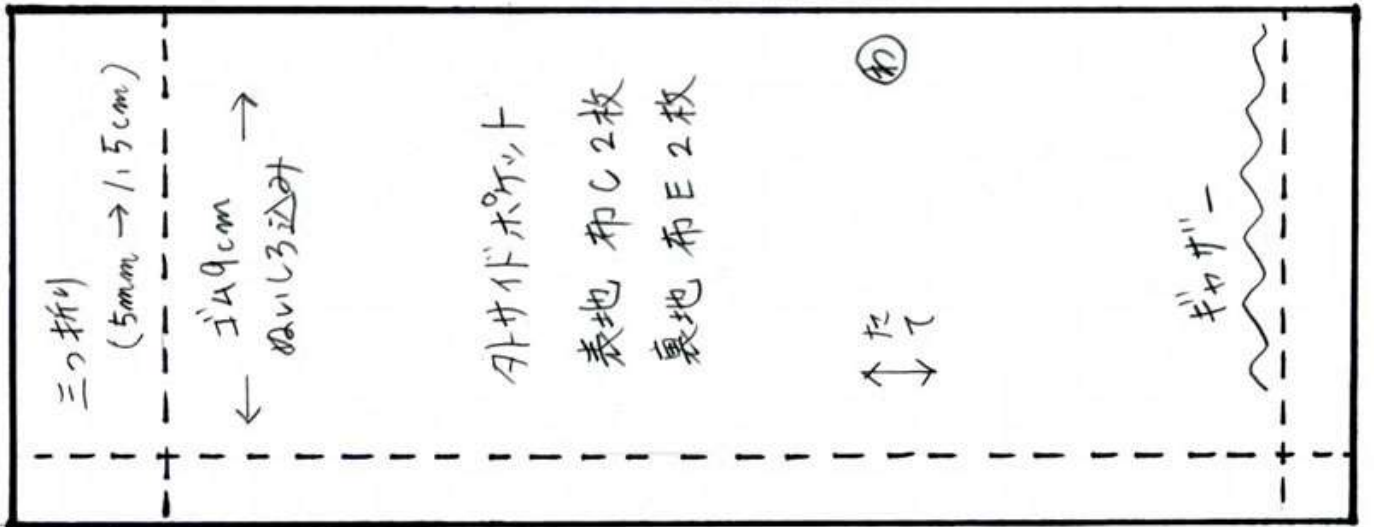 三つ折り
(5mm → 1.5cm)
← ゴム9cm →
ぬいしろ込み
外サイドポケット
表地 布C 2枚
裏地 布E 2枚
わ
↔ たて
ギャザー